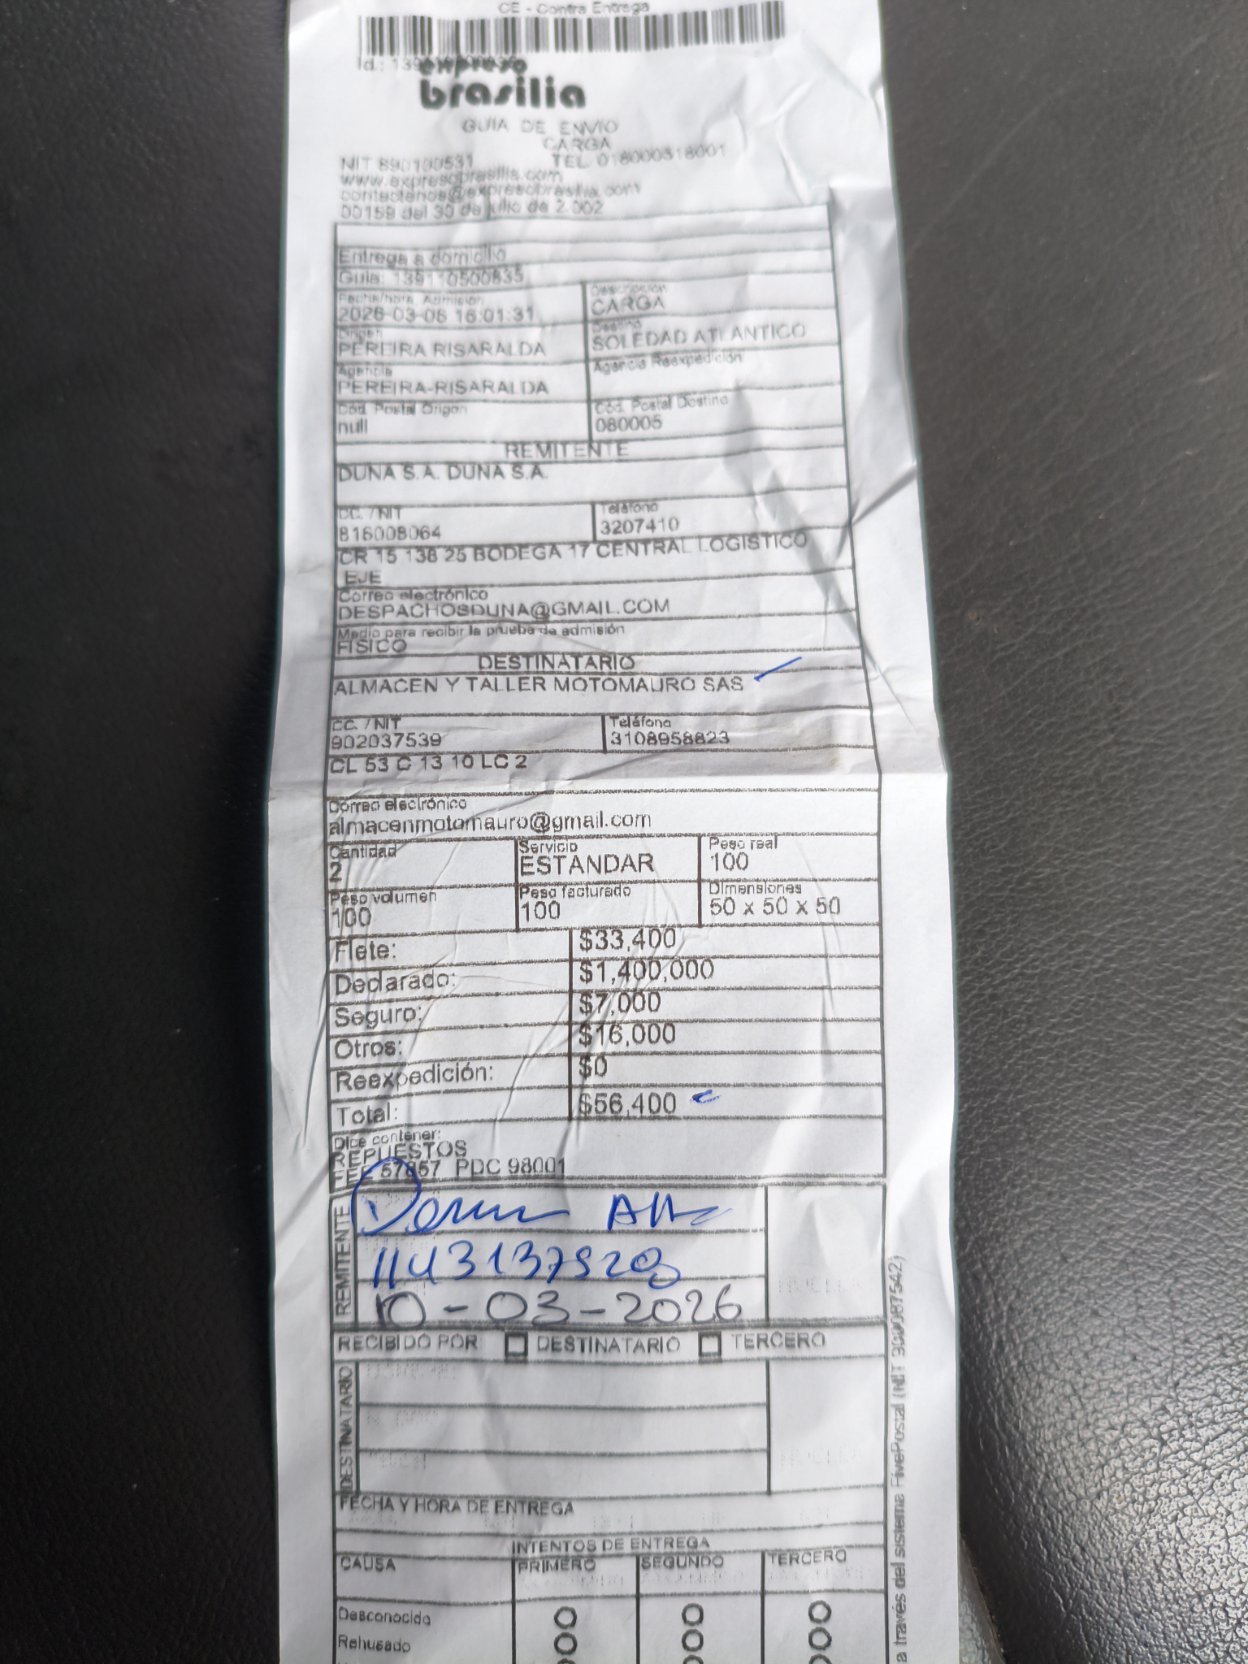 CE - Contra Entrega
expreso
brasilia
GUIA DE ENVIO
CARGA
NIT 890100531 TEL. 018000518001
www.expresobrasilia.com
contactenos@expresobrasilia.com
00159 del 30 de julio de 2.002
Entrega a domicilio
Guia: 139110500835
Fecha/hora Admisión
2026-03-06 16:01:31
Descripción
CARGA
Origen
PEREIRA RISARALDA
Destino
SOLEDAD ATLANTICO
Agencia
PEREIRA-RISARALDA
Agencia Reexpedición
Cód. Postal Origen
null
Cód. Postal Destino
080005
REMITENTE
DUNA S.A. DUNA S.A.
CC. /NIT
816008064
Teléfono
3207410
CR 15 138 25 BODEGA 17 CENTRAL LOGISTICO
EJE
Correo electrónico
DESPACHOSDUNA@GMAIL.COM
Medio para recibir la prueba de admisión
FISICO
DESTINATARIO
ALMACEN Y TALLER MOTOMAURO SAS
CC. /NIT
902037539
Teléfono
3108958823
CL 53 C 13 10 LC 2
Correo electrónico
almacenmotomauro@gmail.com
Cantidad
2
Servicio
ESTANDAR
Peso real
100
Peso volumen
100
Peso facturado
100
Dimensiones
50 x 50 x 50
Flete: $33,400
Declarado: $1,400,000
Seguro: $7,000
Otros: $16,000
Reexpedición: $0
Total: $56,400
Dice contener:
REPUESTOS
57857 PDC 98001
REMITENTE
10-03-2026
RECIBIDO POR DESTINATARIO TERCERO
DESTINATARIO
FECHA Y HORA DE ENTREGA
INTENTOS DE ENTREGA
CAUSA PRIMERO SEGUNDO TERCERO
Desconocido
Rehusado
a través del sistema FivePostal (NIT 900087542)